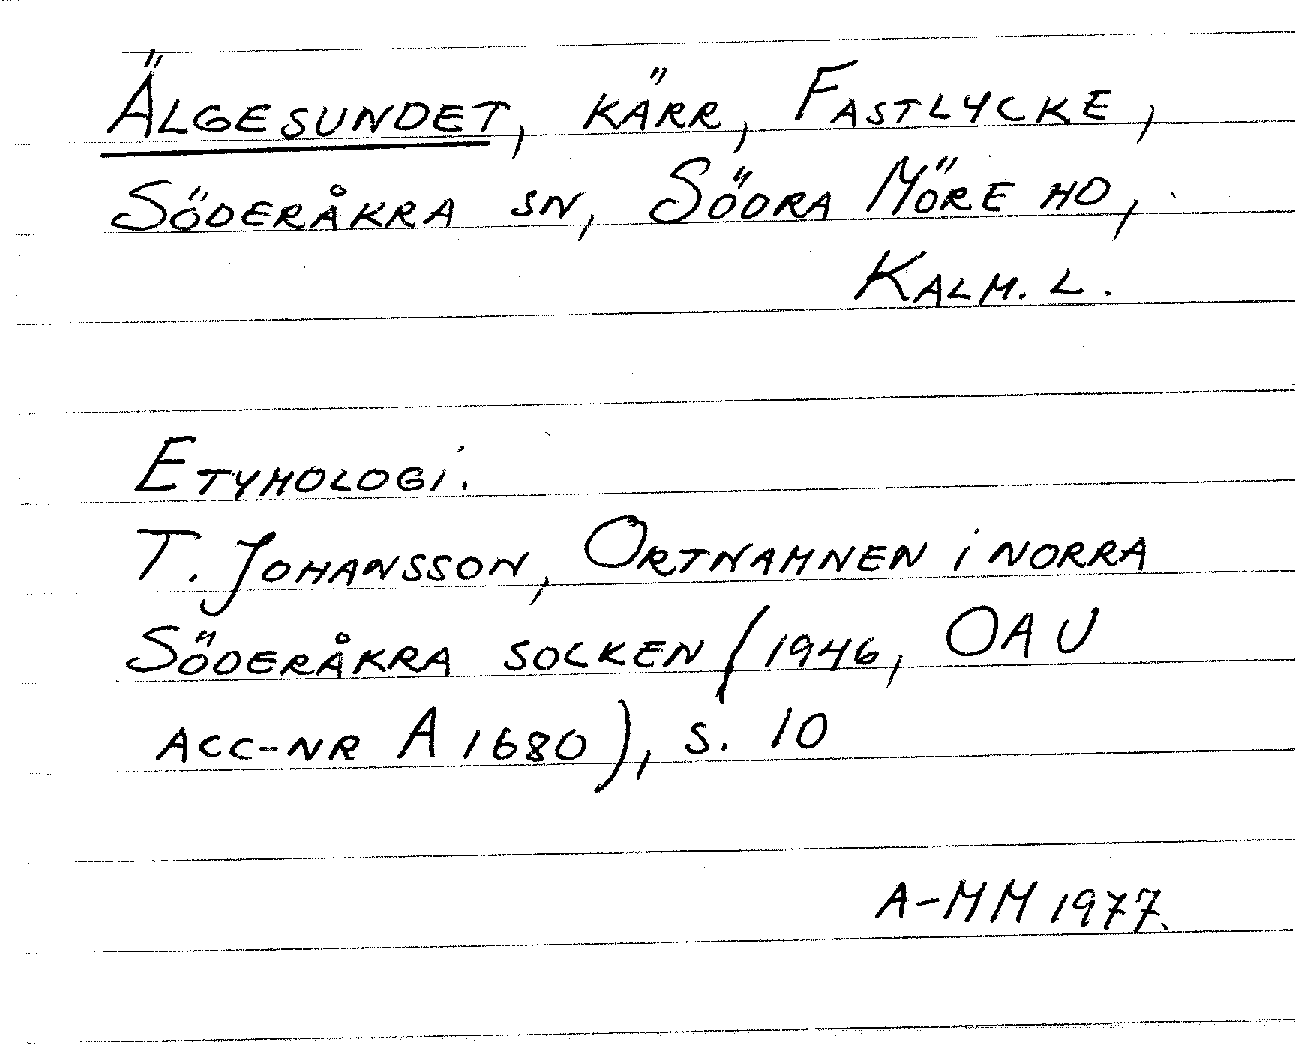 ÄLGESUNDET, KÄRR, FASTLYCKE,
SÖDERÅKRA SN, SÖDRA MÖRE HD,
KALM. L.
ETYMOLOGI.
T. JOHANSSON, ORTNAMNEN I NORRA
SÖDERÅKRA SOCKEN (1946, OAU
ACC-NR A 1680), S. 10
A-MM 1977.